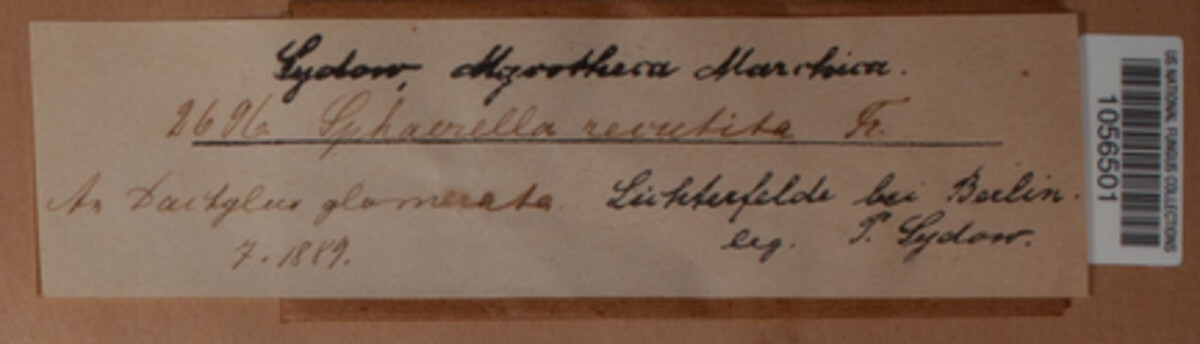 Sydow, Mycotheca Marchica.
2696 Sphaerella recutita Fr.
An Dactylus glomerata. Lichterfelde bei Berlin.
7. 1889. leg. P. Sydow.
US NATIONAL FUNGUS COLLECTIONS
1056501